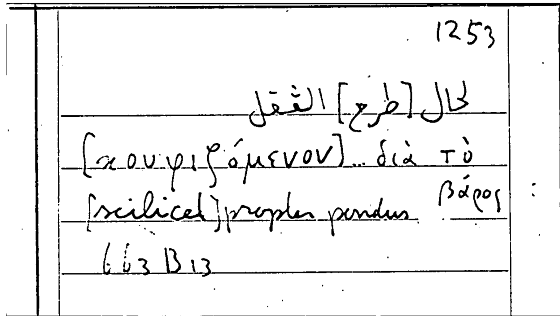 1253
لحال [طرح] الثقل
[κουφιζόμενον]... διὰ τὸ
βάρος
[scilicet] propter pondus
663 B 13